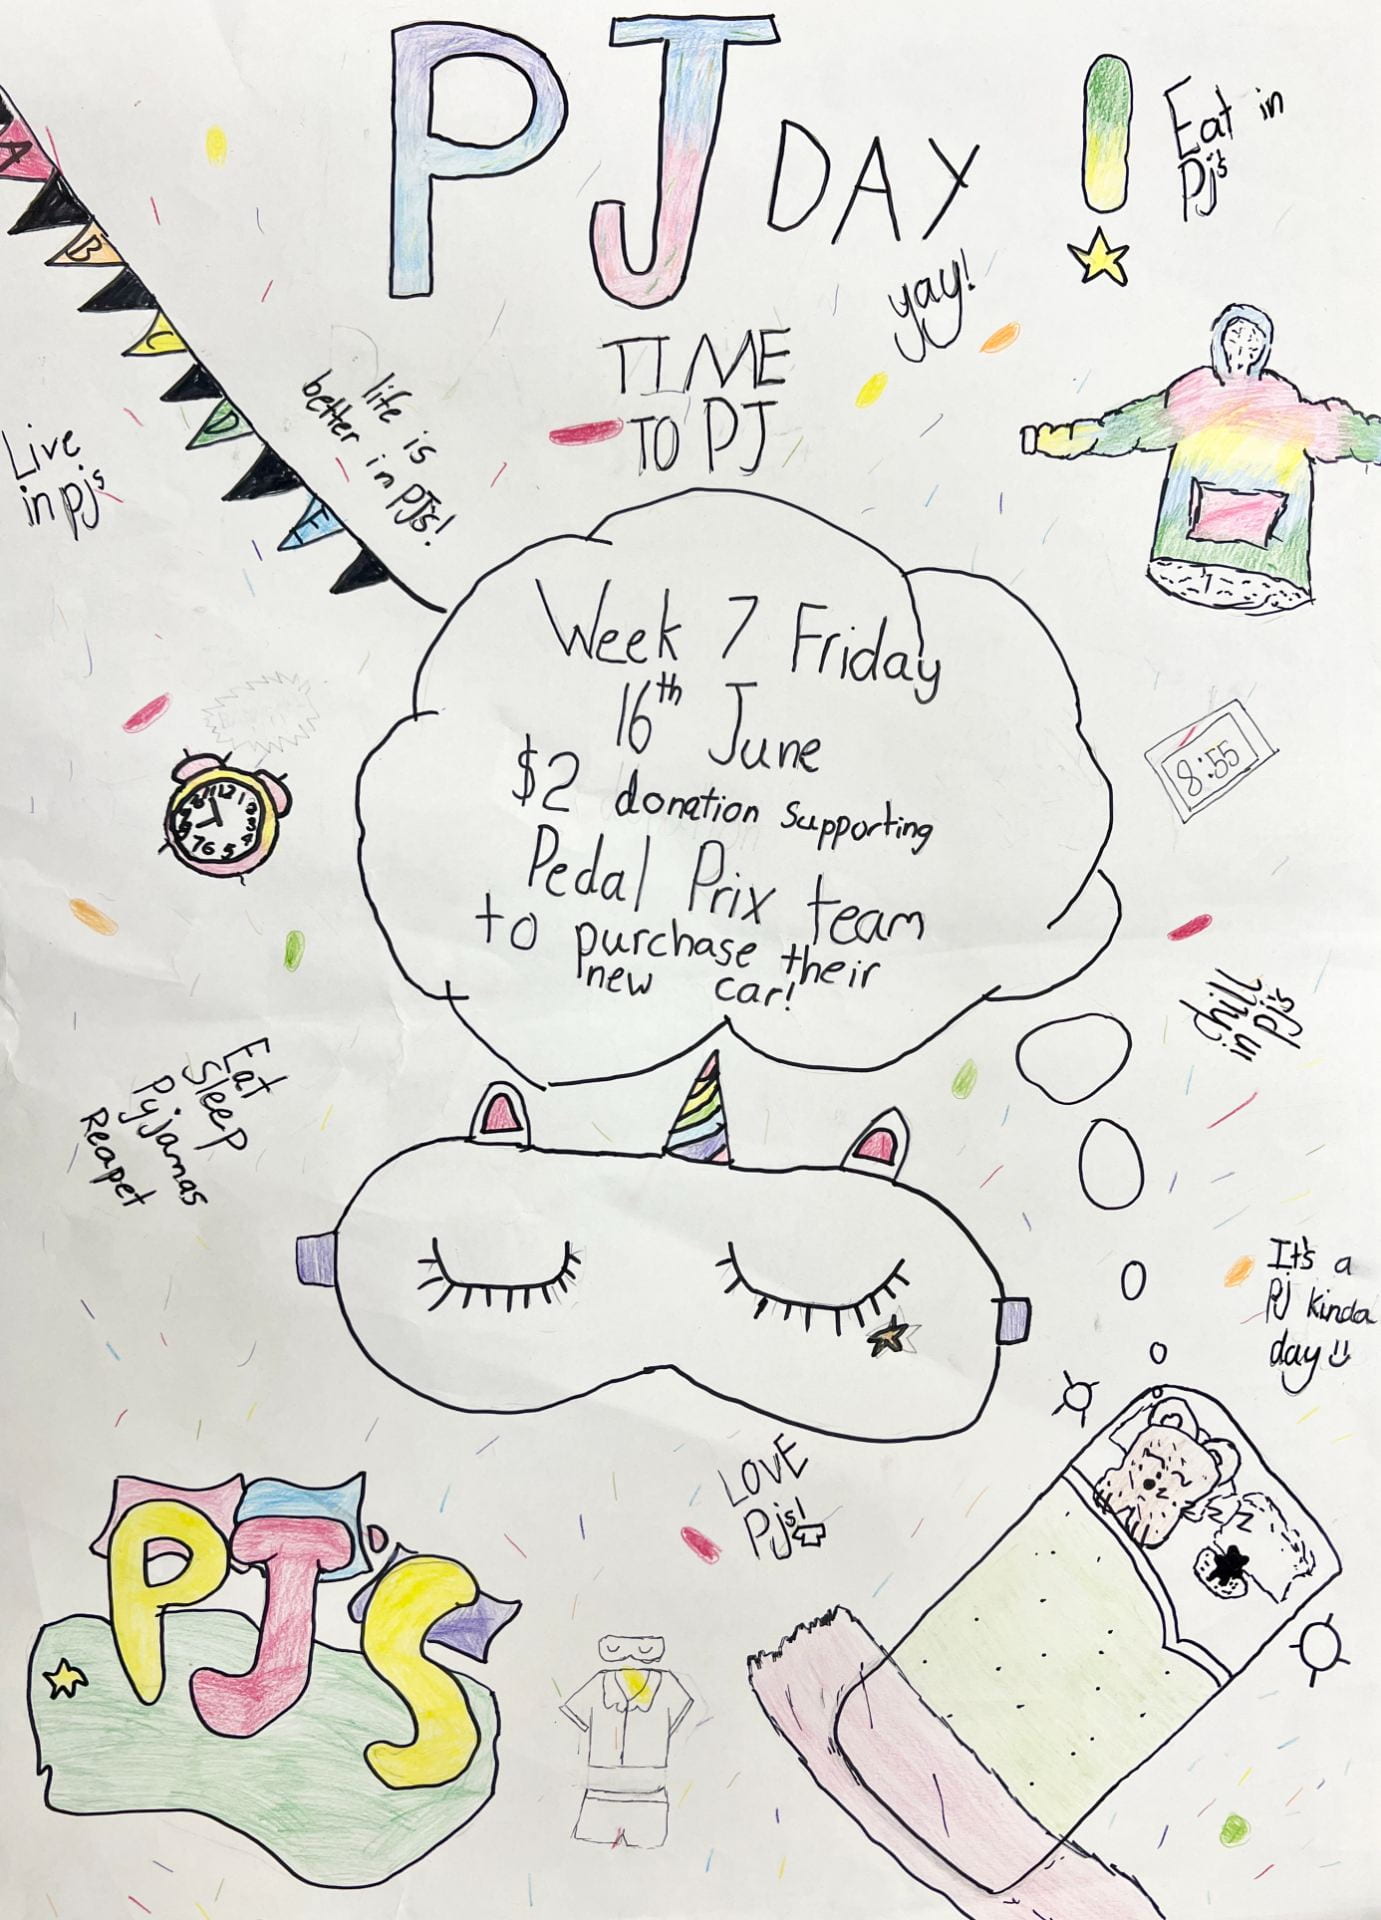 PJ DAY !
Eat in
Pj's
yay!
TIME
TO PJ
A B C D F
life is
better in PJ's!
Live
in pj's
Week 7 Friday
16th June
$2 donation supporting
Pedal Prix team
to purchase their
new car!
11 12 1
8:55
chill
in pj's
Eat
Sleep
Pyjamas
Reapet
It's a
PJ kinda
day
LOVE
Pjs!
PJS